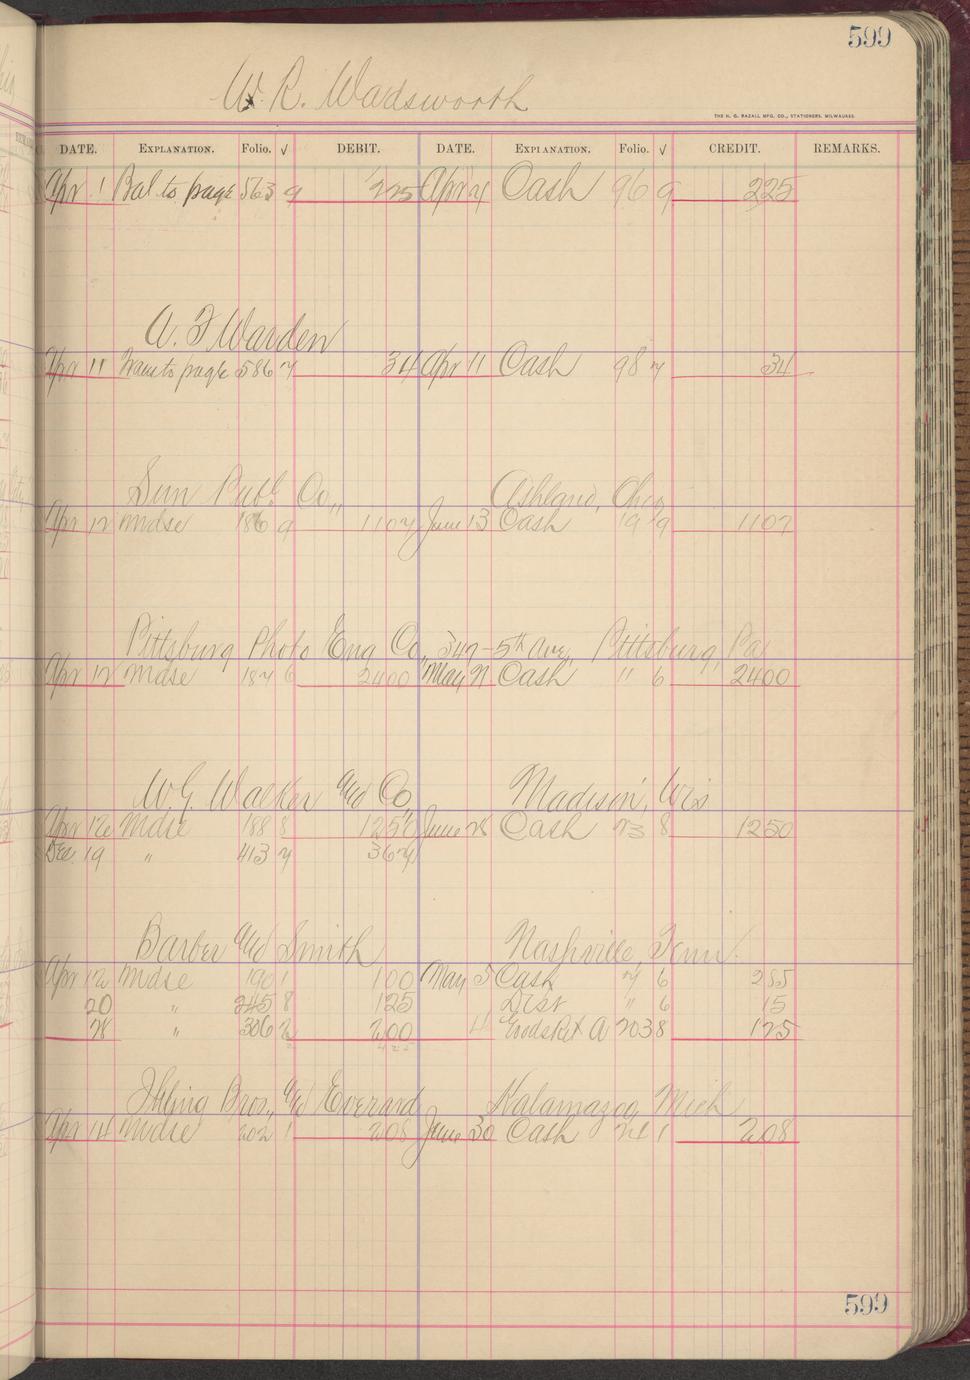 599
W. R. Wadsworth
THE H. G. RAZALL MFG. CO., STATIONERS, MILWAUKEE.
DATE. EXPLANATION. Folio. √ DEBIT. DATE. EXPLANATION. Folio. √ CREDIT. REMARKS.
Apr 1 Bal to page 563 9 225 Apr 4 Cash 96 9 225
A. F Warden
Apr 11 Trans to page 586 7 34 Apr 11 Cash 98 7 34
Sun Publ Co., Ashland,
Apr 12 Mdse 186 9 1107 June 13 Cash 19 9 1107
Pittsburg Photo Eng Co., 347-5th Ave, Pittsburg, Pa
Apr 12 Mdse 187 6 2400 May 21 Cash " 6 2400
W. G. Walker and Co, Madison, Wis
Apr 12 Mdse 188 8 1250 June 28 Cash 23 8 1250
Dec. 19 " 413 7 367
Barber and Smith Nashville, Tenn.
Apr 12 Mdse 190 1 100 May 5 Cash 7 6 285
20 " 245 8 125 Dist " 6 15
28 " 306 2 200 4 Goods Ret A 203 8 125
425
Ihling Bros., and Everard Kalamazoo Mich
Apr 14 Mdse 202 1 208 June 30 Cash 24 1 208
599